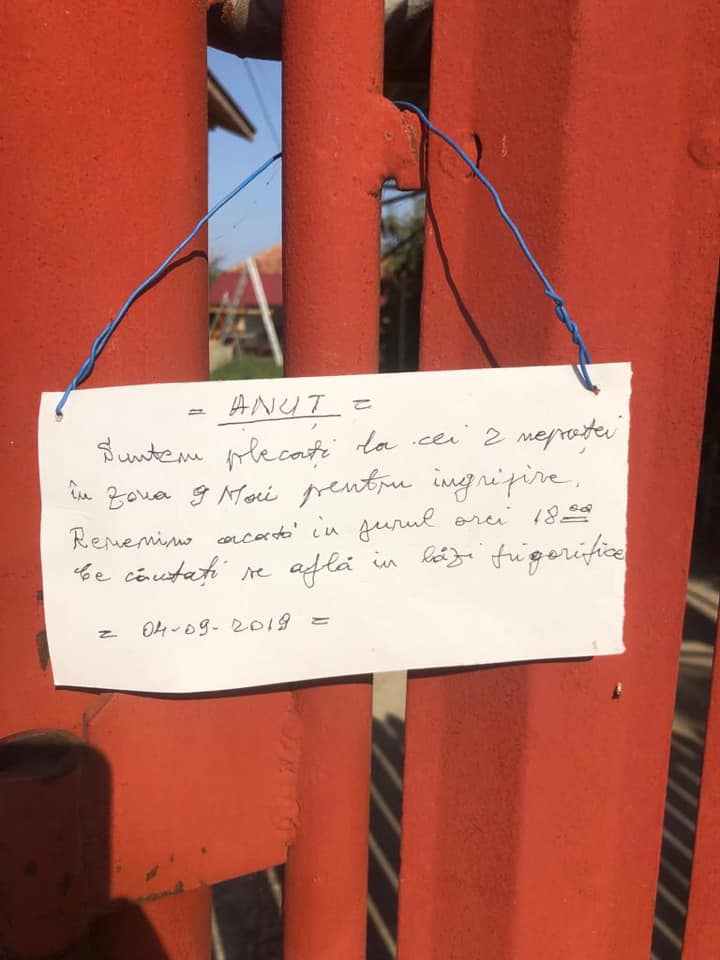 = ANUȚ =
Suntem plecați la cei 2 nepoței
în zona 9 Mai pentru ingrijire.
Revenim acasă in jurul orei 18 ºº
Ce căutați se află in lăzi frigorifice
= 04-09-2019 =